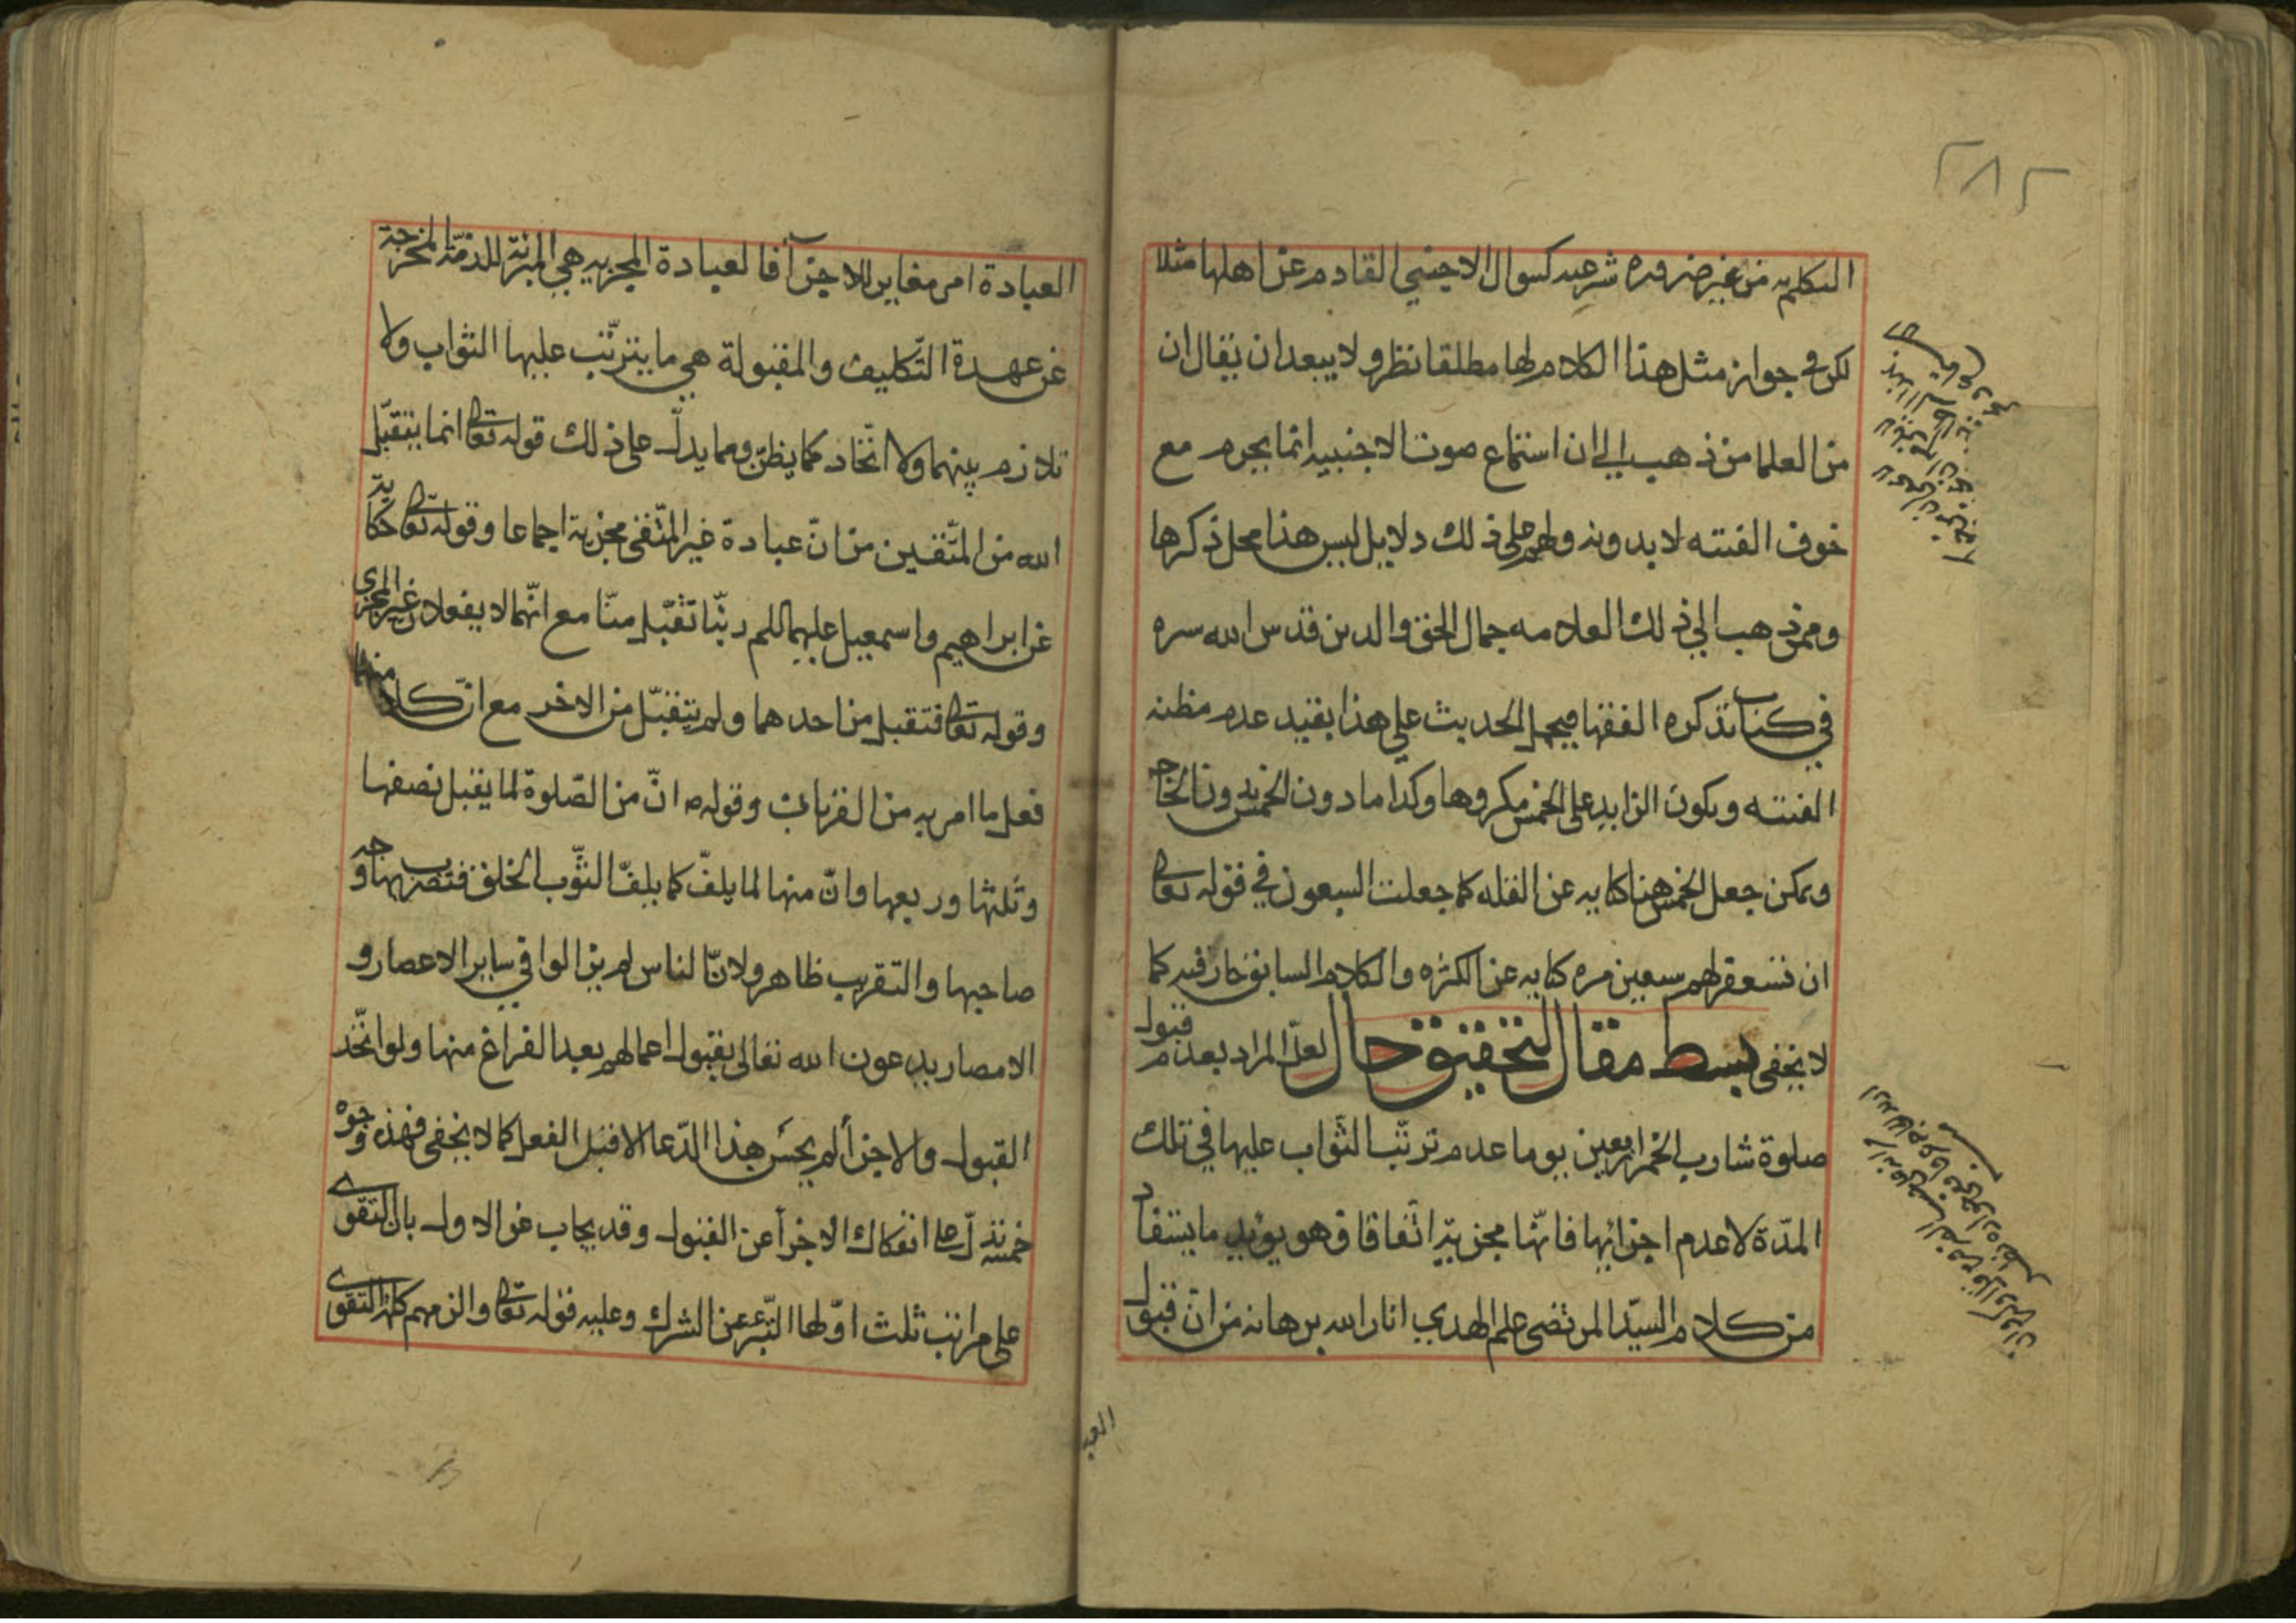 ٢٨٢
التكلم به من غير ضروره شرعيه كسوال الاجنبي القادم عن اهلها مثلا
لكن في جواز مثل هذا الكلام لها مطلقا نظر و لا يبعد ان يقال ان
من العلما من ذهب الي ان استماع صوت الاجنبيه انما يحرم مع
خوف الفتنه لا بدونه ولهم علي ذلك دلايل ليس هذا محل ذكرها
وممن ذهب الي ذلك العلامه جمال الحق والدين قدس الله سره
في كتاب تذكره الفقها فيحمل الحديث علي هذا بقيد عدم مظنه
الفتنه ويكون الزايد علي الخمس مكروها وكذا ما دون الخمس بدون الحاجه
ويمكن جعل الخمس هنا كنايه عن القله كما جعلت السبعون في قوله تعالى
ان تستغفر لهم سبعين مره كنايه عن الكثره والكلام السابق جار فيه كما
لا يخفى بسط مقال لتحقيق حال لعلّ المراد بعدم قبول
صلوة شارب الخمر اربعين يوما عدم ترتّب الثّواب عليها في تلك
المدّة لا عدم اجزائها فانّها مجزيّة اتّفاقا وهو يؤيد ما يستفاد
من كلام السيّد المرتضى علم الهدي انار الله برهانه من انّ قبول
العبا
العبادة امر مغاير للاجزآ فالعبادة المجزيه هي المبرئة للذمّة المخرجة
عن عهدة التّكليف والمقبولة هي ما يترتّب عليها الثواب ولا
تلازم بينهما ولا اتّحاد كما يظنّ ومما يدلّ على ذلك قوله تعالى انما يتقبّل
الله من المتّقين من انّ عبادة غير المتّقي مجزية اجماعا وقوله تعالى حكاية
عن ابراهيم واسمعيل عليهما السلم ربّنا تقبّل منّا مع انّهما لا يفعلان غير المجزي
وقوله تعالى فتقبل من احدهما ولم يتقبّل من الاخر مع انّ كلا منهما
فعل ما امر به من القربان وقوله ص انّ من الصّلوة لما يقبل نصفها
وثلثها وربعها وانّ منها لما يلفّ كما يلفّ الثّوب الخلق فتضرب بها وجه
صاحبها والتقريب ظاهر ولانّ الناس لم يزالوا في ساير الاعصار و
الامصار يدعون الله تعالى بقبول اعمالهم بعد الفراغ منها ولو اتّحد
القبول والاجزأ لم يحسن هذا الدّعا الا قبل الفعل كما لا يخفى فهذه وجوه
خمسة تدلّ على انفكاك الاجزأ عن القبول وقد يجاب عن الاول بان التقوى
على مراتب ثلث اوّلها التّبرّء عن الشرك وعليه قوله تعالى والزمهم كلمة التقوى